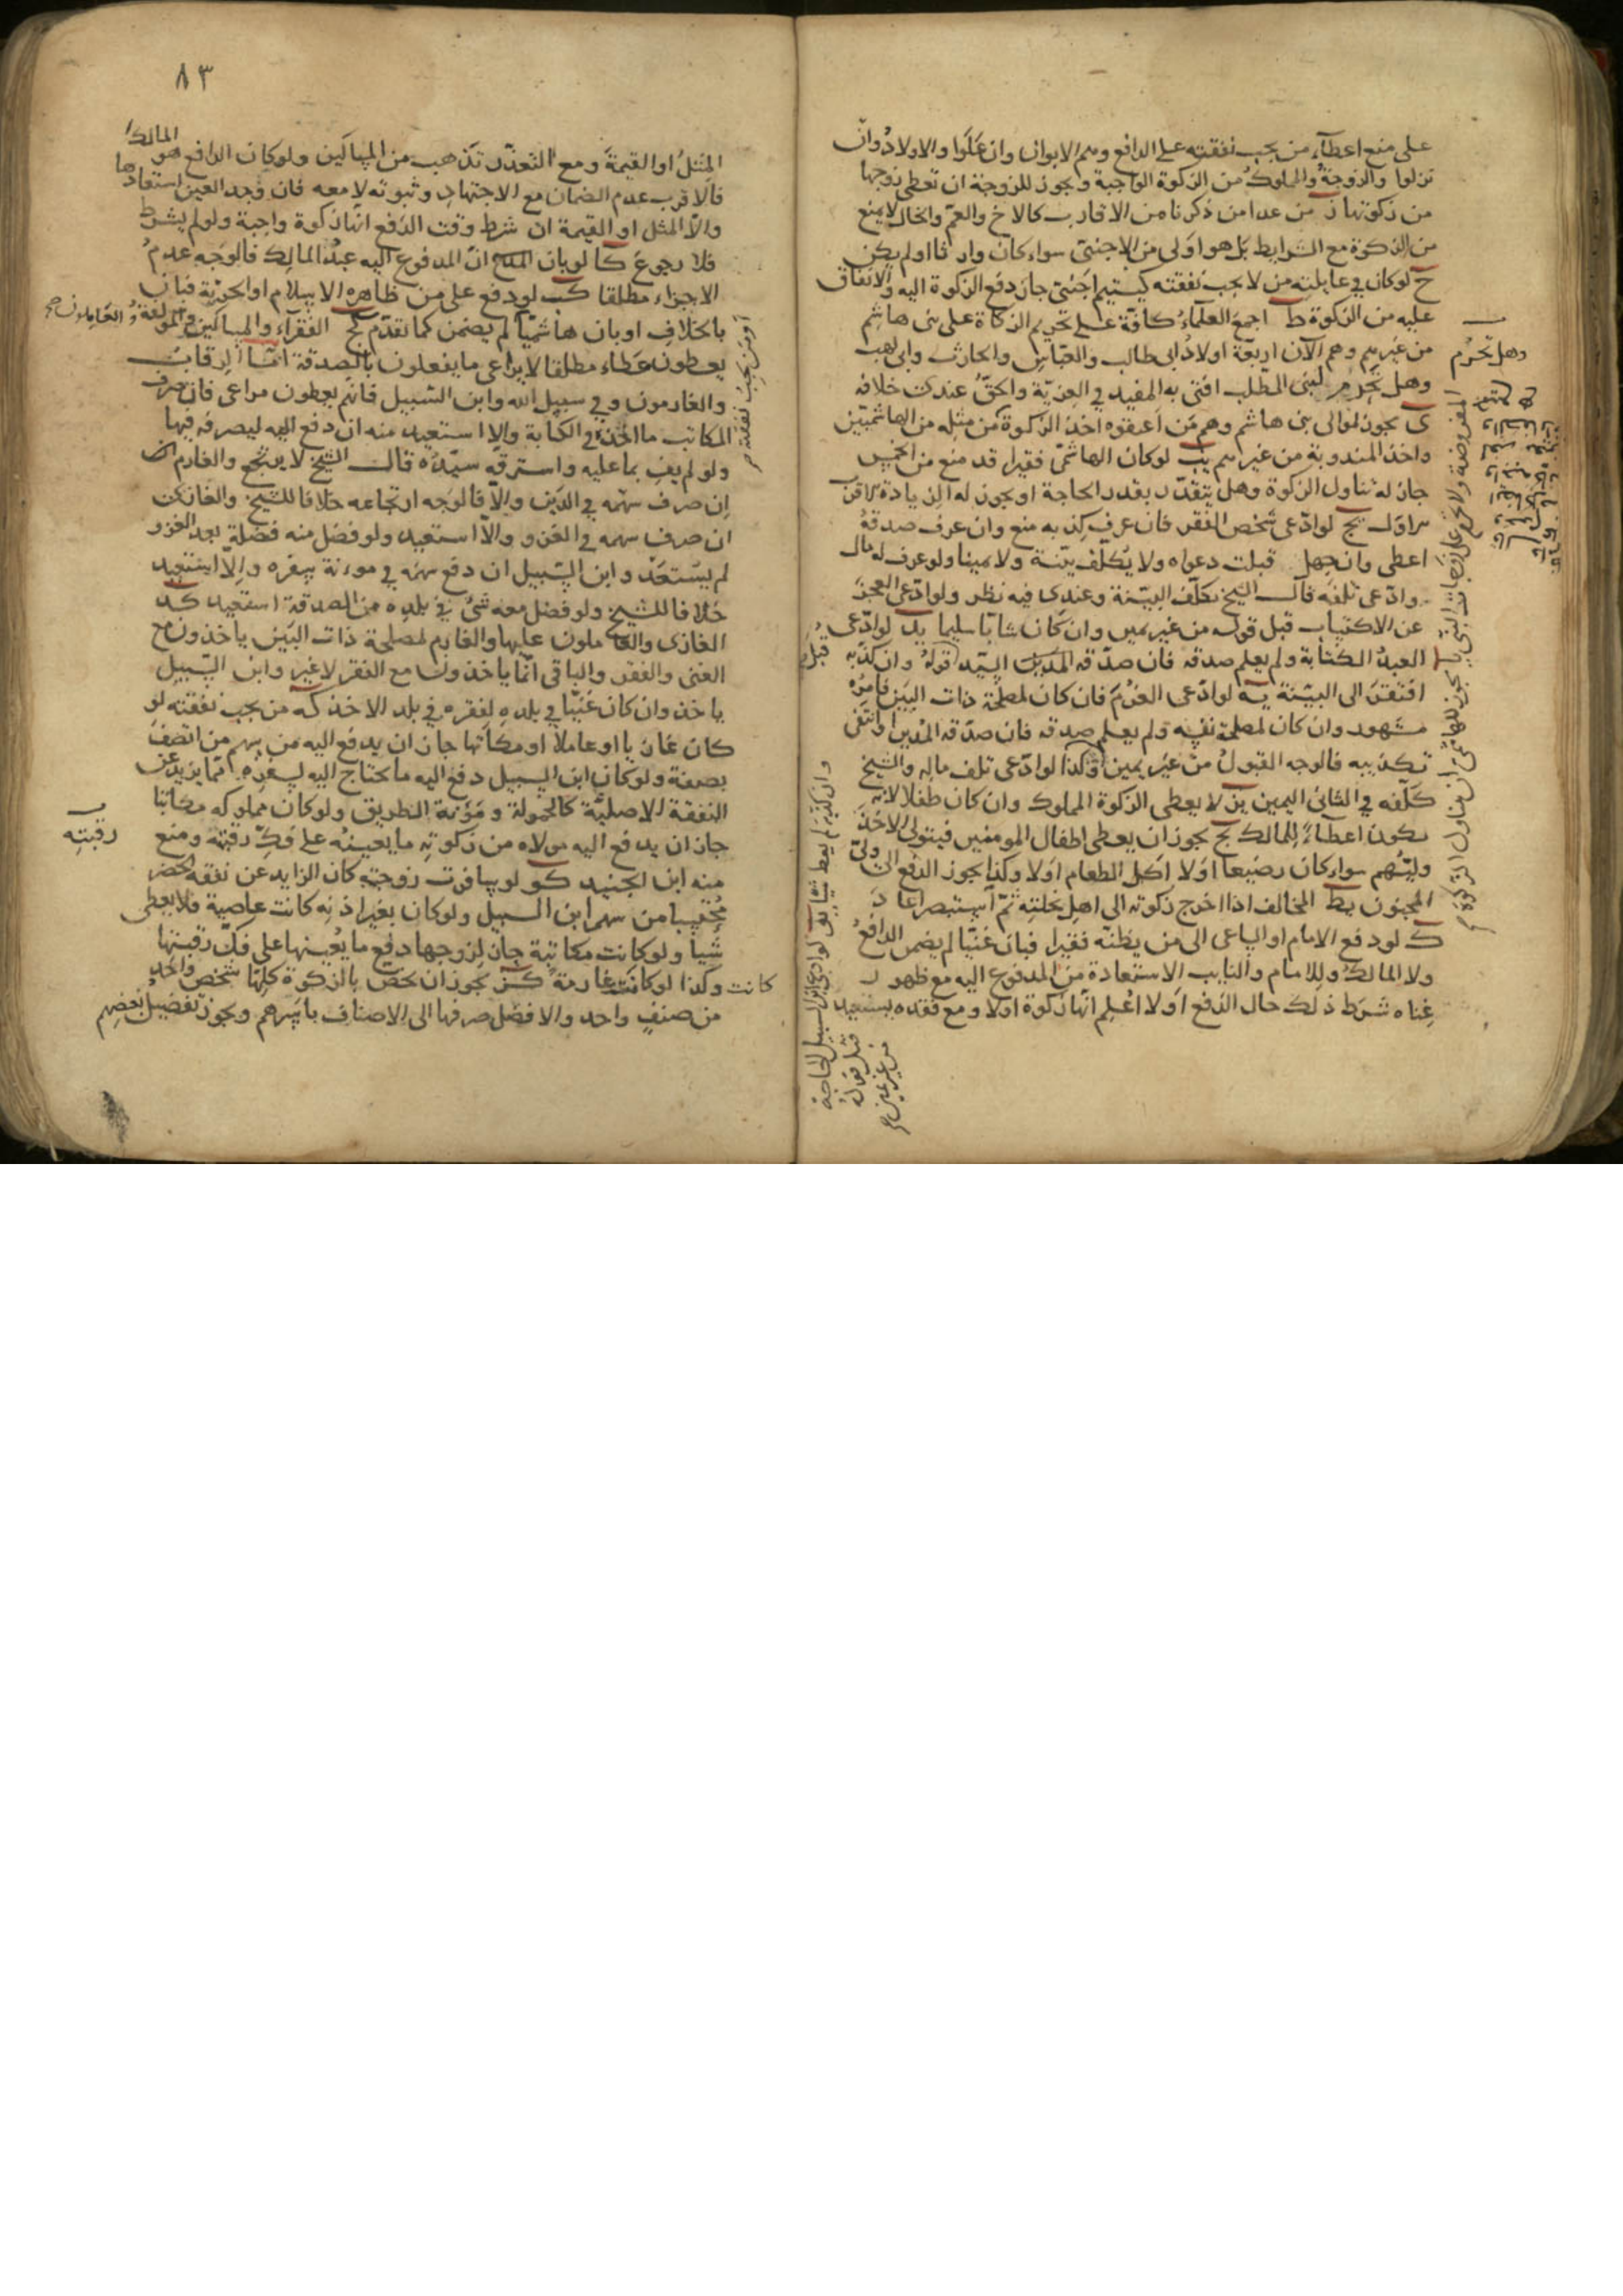 على منع اعطاء من يجب نفقته على الدافع وهم الابوان وان علوا والاولاد وان
نزلوا والزوجة والمملوك من الزكوة الواجبة ويجوز للزوجة ان تعطى زوجها
من زكوتها ز من عدا من ذكرنا من الاقارب كالاخ والعم والخال لا يمنع
من الزكوة مع الشرايط بل هو اولى من الاجنبى سواء كان وارثا او لم يكن
ح لو كان في عايلته من لا يجب نفقته كيتيم اجنبى جاز دفع الزكوة اليه والانفاق
عليه من الزكوة ط اجمع العلماء كافة على تحريم الزكاة على بنى هاشم
من غيرهم وهم الآن اربعة اولاد ابى طالب والعباس والحارث وابى لهب
وهل تحرم لبنى المطلب افتى به المفيد في العزية والحق عندى خلافه
ى يجوز لموالى بنى هاشم وهم من اعتقوه اخذ الزكوة من مثله من الهاشميين
واخذ المندوبة من غيرهم يب لو كان الهاشمى فقيرا قد منع من الخمس
جاز له تناول الزكوة وهل يتقدر بقدر الحاجة او يجوز له الزيادة الاقرب
الاول يج لو ادعى شخص الفقر فان عرف كذبه منع وان عرف صدقه
اعطى وان جهل قبلت دعواه ولا يكلف بينة ولا يمينا ولو عرف له مال
وادعى تلفه قال الشيخ يكلف البينة وعندى فيه نظر ولو ادعى العجز
عن الاكتساب قبل قوله من غير يمين وان كان شابا سليما يد لو ادعى
العبد الكتابة ولم يعلم صدقه فان صدقه السيد قبل قوله وان كذبه
افتقر الى البينة يه لو ادعى الغرم فان كان لمصلحة ذات البين فامره
مشهود وان كان لمصلحة نفسه ولم يعلم صدقه فان صدقه المدين او انتفى
تكذيبه فالوجه القبول من غير يمين وكذا لو ادعى تلف ماله والشيخ
كلفه في الثانى اليمين يز لا يعطى الزكوة المملوك وان كان طفلا لانه
يكون اعطاء للمالك يح يجوز ان يعطى اطفال المومنين فيتولى الاخذ
وليهم سواء كان رضيعا او لا اكل الطعام او لا وكذا يجوز الدفع الى ولى
المجنون يط المخالف اذا اخرج زكوته الى اهل نحلته ثم استبصر اعاد
ك لو دفع الامام او الساعى الى من يظنه فقيرا فبان غنيا لم يضمن الدافع
ولا المالك وللامام والنايب الاستعادة من المدفوع اليه مع ظهور
غناه شرط ذلك حال الدفع او لا اعلم انها زكوة او لا ومع فقده يستعيد
وهل تحرم
وان كذبه لم يعط شيئا يو لو ادعى ابن السبيل الحاجة
قبل قوله
من غير يمين صح
٨٣
المثل او القيمة ومع التعذر تذهب من المساكين ولو كان الدافع هو المالك
فالاقرب عدم الضمان مع الاجتهاد وثبوته لا معه فان وجد العين استعادها
والا المثل او القيمة ان شرط وقت الدفع انها زكوة واجبة ولو لم يشرط
فلا رجوع كا لو بان ان المدفوع اليه عبد المالك فالوجه عدم
الاجزاء مطلقا كب لو دفع على من ظاهره الاسلام او الحرية فبان
بالخلاف او بان هاشميا لم يضمن كما تقدم كج الفقراء والمساكين والمؤلفة والعاملون صح
يعطون عطاء مطلقا لا يراعى ما يفعلون بالصدقة اما الرقاب
والغارمون وفي سبيل الله وابن السبيل فانهم يعطون مراعى فان صرف
المكاتب ما اخذه في الكتابة والا استعيد منه ان دفع اليه ليصرفه فيها
ولو لم يف بما عليه واسترقه سيده قال الشيخ لا يرتجع والغارم
ان صرف سهمه في الدين والا فالوجه ارتجاعه خلافا للشيخ والغازى
ان صرف سهمه في الغزو والا استعيد ولو فضل منه فضلة بعد الغزو
لم يستعد وابن السبيل ان دفع سهمه في مونة سفره والا استعيد
خلافا للشيخ ولو فضل معه شئ في بلده من الصدقة استعيد كد
الغازى والعاملون عليها والغارم لمصلحة ذات البين ياخذون مع
الغنى والفقر والباقى انما ياخذون مع الفقر لا غير وابن السبيل
ياخذ وان كان غنيا في بلده لفقره في بلد الاخذ كه من يجب نفقته لو
كان غازيا او عاملا او مكاتبا جاز ان يدفع اليه من سهم من اتصف
بصفة ولو كان ابن السبيل دفع اليه ما يحتاج اليه لسفره مما يزيد عن
النفقة الاصلية كالحمولة ومؤنة الطريق ولو كان مملوكه مكاتبا
جاز ان يدفع اليه مولاه من زكوته ما يعينه على فك رقبته ومنع
منه ابن الجنيد كو لو سافرت زوجته كان الزايد عن نفقة الحضر
محتسبا من سهم ابن السبيل ولو كان بغير اذنه كانت عاصية فلا يعطى
شيا ولو كانت مكاتبة جاز لزوجها دفع ما يعينها على فك رقبتها
وكذا لو كانت غارمة كز يجوز ان يخص بالزكوة كلها شخص واحد
من صنف واحد والافضل صرفها الى الاصناف باسرهم ويجوز تفضيل بعضهم
او من تجب نفقته صح
رقبته
كانت